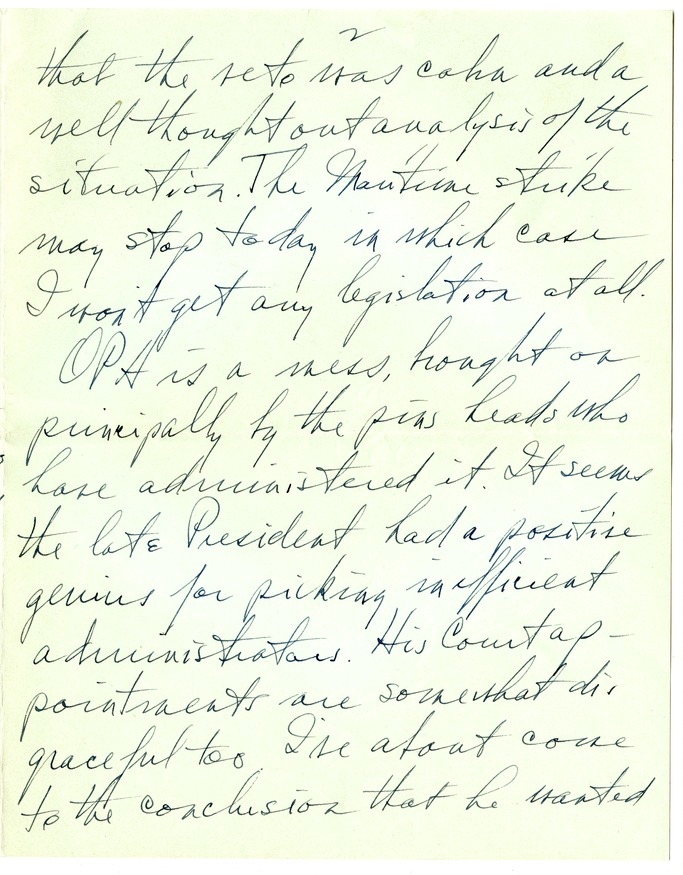 2
that the veto was calm and a
well thought out analysis of the
situation. The Maritime strike
may stop today in which case
I won't get any legislation at all.
OPA is a mess, brought on
principally by the pin heads who
have administered it. It seems
the late President had a positive
genius for picking inefficient
administrators. His Court ap-
pointments are somewhat dis
graceful too. I've about come
to the conclusion that he wanted